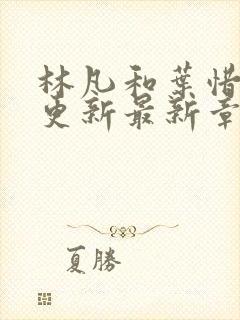 林凡和葉惜
更新最新章
夏勝